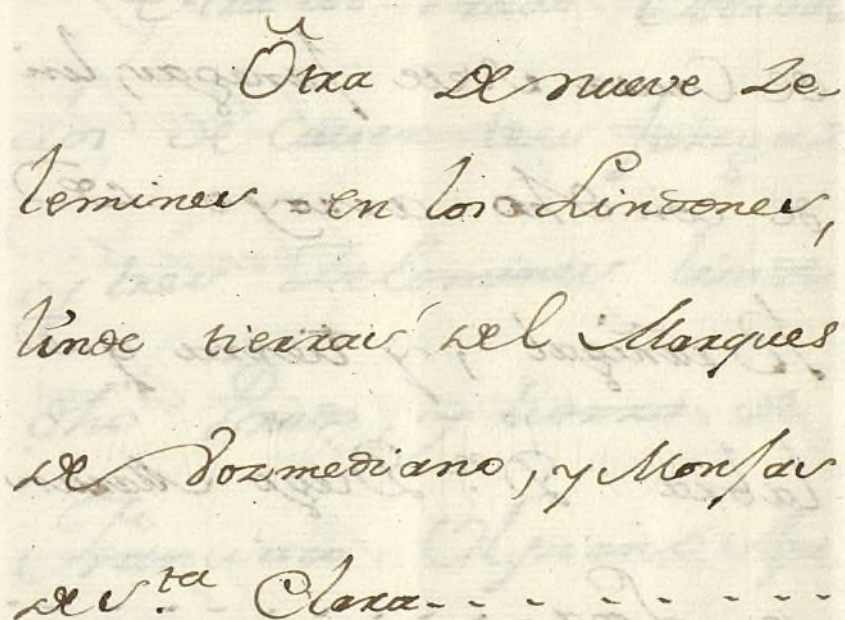 Otra de nueve Ze-
lemines en los Lindones,
linde tierras del Marques
de Vozmediano, y Monjas
de S.ta Clara - - - - - - - -